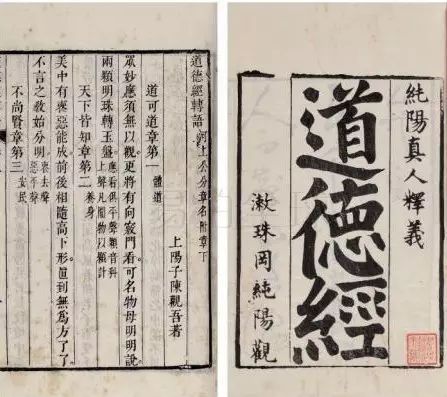 純陽真人釋義
道德經
漱珠岡純陽觀
道德經轉語 河上公分章名附章下
上陽子陳觀吾著
道可道章第一 體道
眾妙應須無以觀更將有向竅門看可名物母明明說
兩顆明珠轉玉盤 應看俱平聲顆音科上聲凡圓物以顆計
天下皆知章第二 養身
美中有喪惡能成前後相隨高下形直到無爲方了了
不言之敎始分明 喪去聲惡平聲
不尚賢章第三 安民